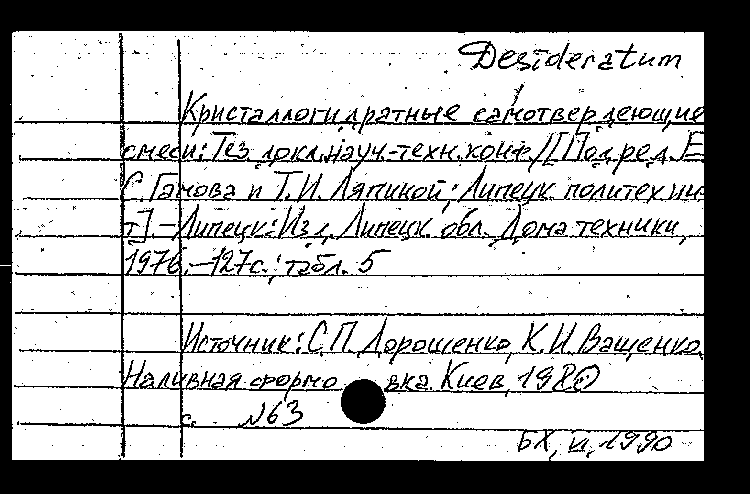 Desideratum
Кристаллогидратные самотвердеющие
смеси: Тез. докл. науч.-техн. конф. /[Под ред. Е.
С. Гамова и Т.И. Ляпиной; Липецк. политех ин-
т] – Липецк: Изд. Липецк. обл. Дома техники,
1976. – 127с.; табл. 5
Источник: С.П. Дорошенко, К.И. Ващенко.
Наливная формовка. Киев, 1980
с. №63
БХ, VI, 1990